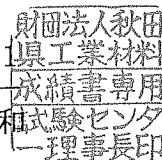 財団法人秋田
県工業材料
成績書専用
試験センタ
ー理事長印
和